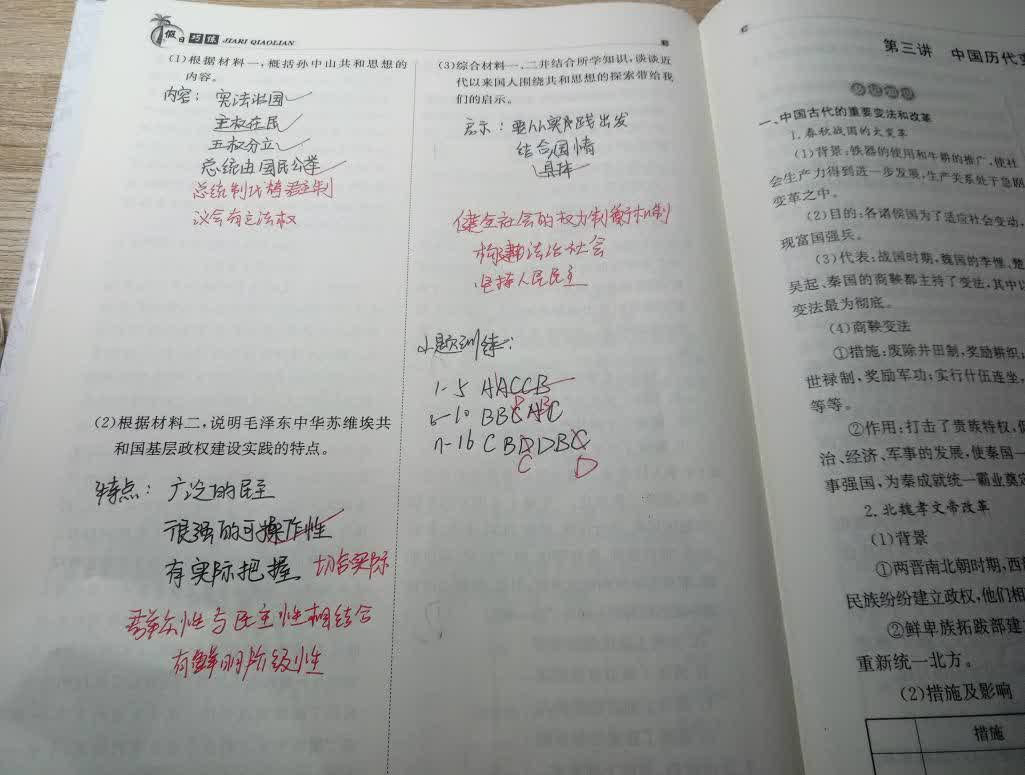 假日巧练 JIARI QIAOLIAN
(1)根据材料一,概括孙中山共和思想的
内容。
内容：宪法治国
主权在民
五权分立
总统由国民公举
总统制代替君主制
议会有立法权
(2)根据材料二,说明毛泽东中华苏维埃共
和国基层政权建设实践的特点。
特点：广泛的民主
很强的可操作性
有实际把握 切合实际
群众性与民主性相结合
有鲜明阶级性
(3)综合材料一、二并结合所学知识,谈谈近
代以来国人围绕共和思想的探索带给我
们的启示。
启示：要从实际践出发
结合国情
具体
健全社会的权力制衡机制
构建法治社会
坚持人民民主
小题训练一：
1-5 AACCB
6-10 BBCAC
11-16 CBDDBC
C D
第三讲 中国历代变
一、中国古代的重要变法和改革
1. 春秋战国的大变革
(1)背景:铁器的使用和牛耕的推广,使社
会生产力得到进一步发展,生产关系处于急剧
变革之中。
(2)目的:各诸侯国为了适应社会变动,
现富国强兵。
(3)代表:战国时期,魏国的李悝、楚
吴起、秦国的商鞅都主持了变法,其中以
变法最为彻底。
(4)商鞅变法
①措施:废除井田制,奖励耕织;
世禄制,奖励军功;实行什伍连坐,
等等。
②作用:打击了贵族特权,促
治、经济、军事的发展,使秦国一
事强国,为秦成就统一霸业奠定
2. 北魏孝文帝改革
(1)背景
①两晋南北朝时期,西
民族纷纷建立政权,他们相
②鲜卑族拓跋部建
重新统一北方。
(2)措施及影响
措施